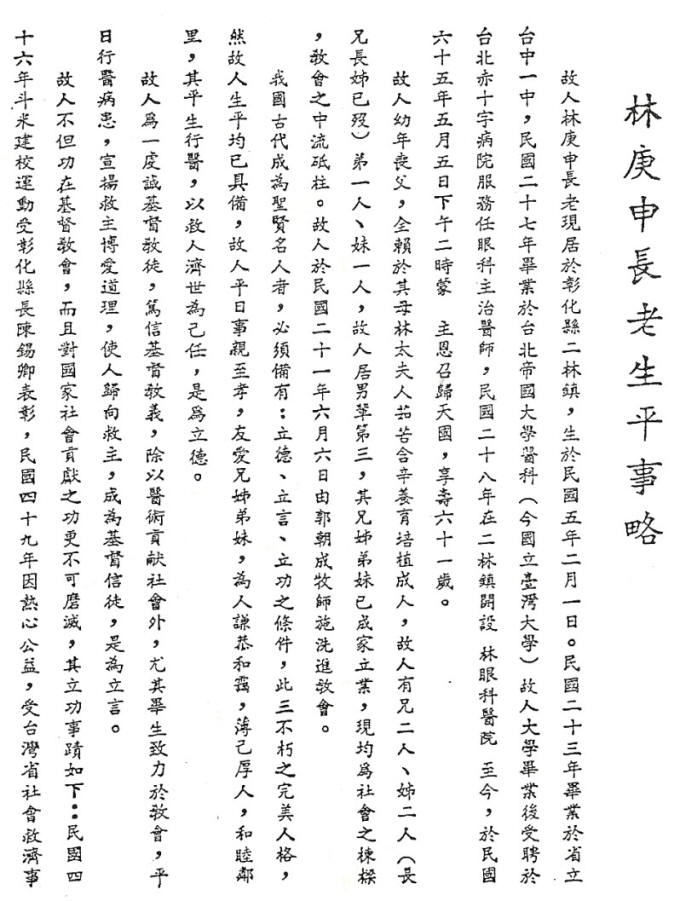 林庚申長老生平事略
故人林庚申長老現居於彰化縣二林鎮，生於民國五年二月一日。民國二十三年畢業於省立
台中一中，民國二十七年畢業於台北帝國大學醫科（今國立臺灣大學）故人大學畢業後受聘於
台北赤十字病院服務任眼科主治醫師，民國二十八年在二林鎮開設 林眼科醫院 至今，於民國
六十五年五月五日下午二時蒙 主恩召歸天國，享壽六十一歲。
故人幼年喪父，全賴於其母林太夫人茹苦含辛養育培植成人，故人有兄二人、姊二人（長
兄長姊已歿）弟一人、妹一人，故人居男輩第三，其兄姊弟妹已成家立業，現均為社會之棟樑
，教會之中流砥柱。故人於民國二十一年六月六日由郭朝成牧師施洗進教會。
我國古代成為聖賢名人者，必須備有：立德、立言、立功之條件，此三不朽之完美人格，
然故人生平均已具備，故人平日事親至孝，友愛兄姊弟妹，為人謙恭和靄，薄己厚人，和睦鄰
里，其平生行醫，以救人濟世為己任，是爲立德。
故人爲一虔誠基督教徒，篤信基督教義，除以醫術貢献社會外，尤其畢生致力於教會，平
日行醫病患，宣揚救主博愛道理，使人歸向救主，成為基督信徒，是為立言。
故人不但功在基督教會，而且對國家社會貢獻之功更不可磨滅，其立功事蹟如下：民國四
十六年斗米建校運動受彰化縣長陳錫卿表彰，民國四十九年因熱心公益，受台灣省社會救濟事